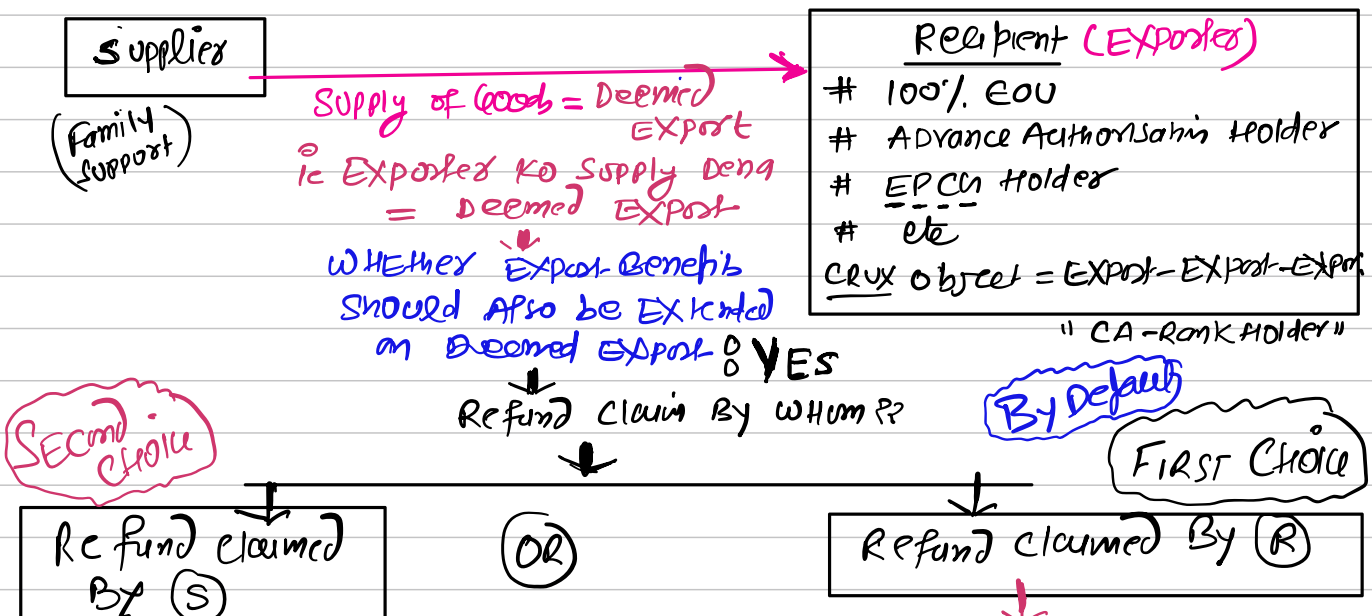 Supplier
(Family
Support)
Supply of Goods = Deemed
Export
ie Exporter Ko Supply Dena
= Deemed Export
Whether Export Benefits
Should Also be Extended
on Deemed Export : YES
Refund Claim By Whom ??
Recipient (Exporter)
# 100% EOU
# Advance Authorisation Holder
# EPCG Holder
# etc
CRUX Object = Export-Export-Export
"CA-Rank Holder"
By Default
First Choice
Second
Choice
Refund Claimed
By S
OR
Refund Claimed By R